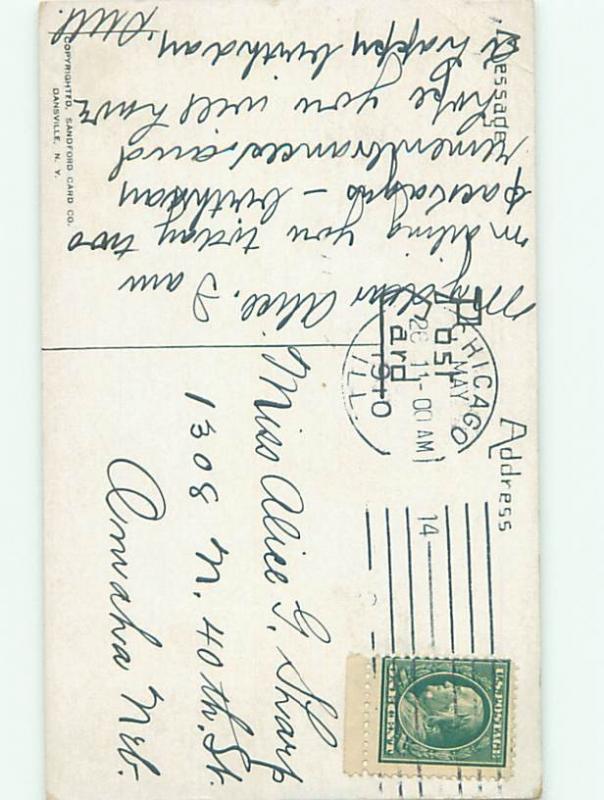 Post
Card
Message
Address
My dear Alice. I am
mailing you today two
packages – birthday
remembrances and
hope you will have
a happy birthday,
COPYRIGHTED, SANDFORD CARD CO.
DANSVILLE, N. Y.
CHICAGO
MAY
26 11-00 AM
1910
ILL.
14
U.S. POSTAGE
CENT
Miss Alice G. Sharp
1308 N. 40th. St.
Omaha Neb.